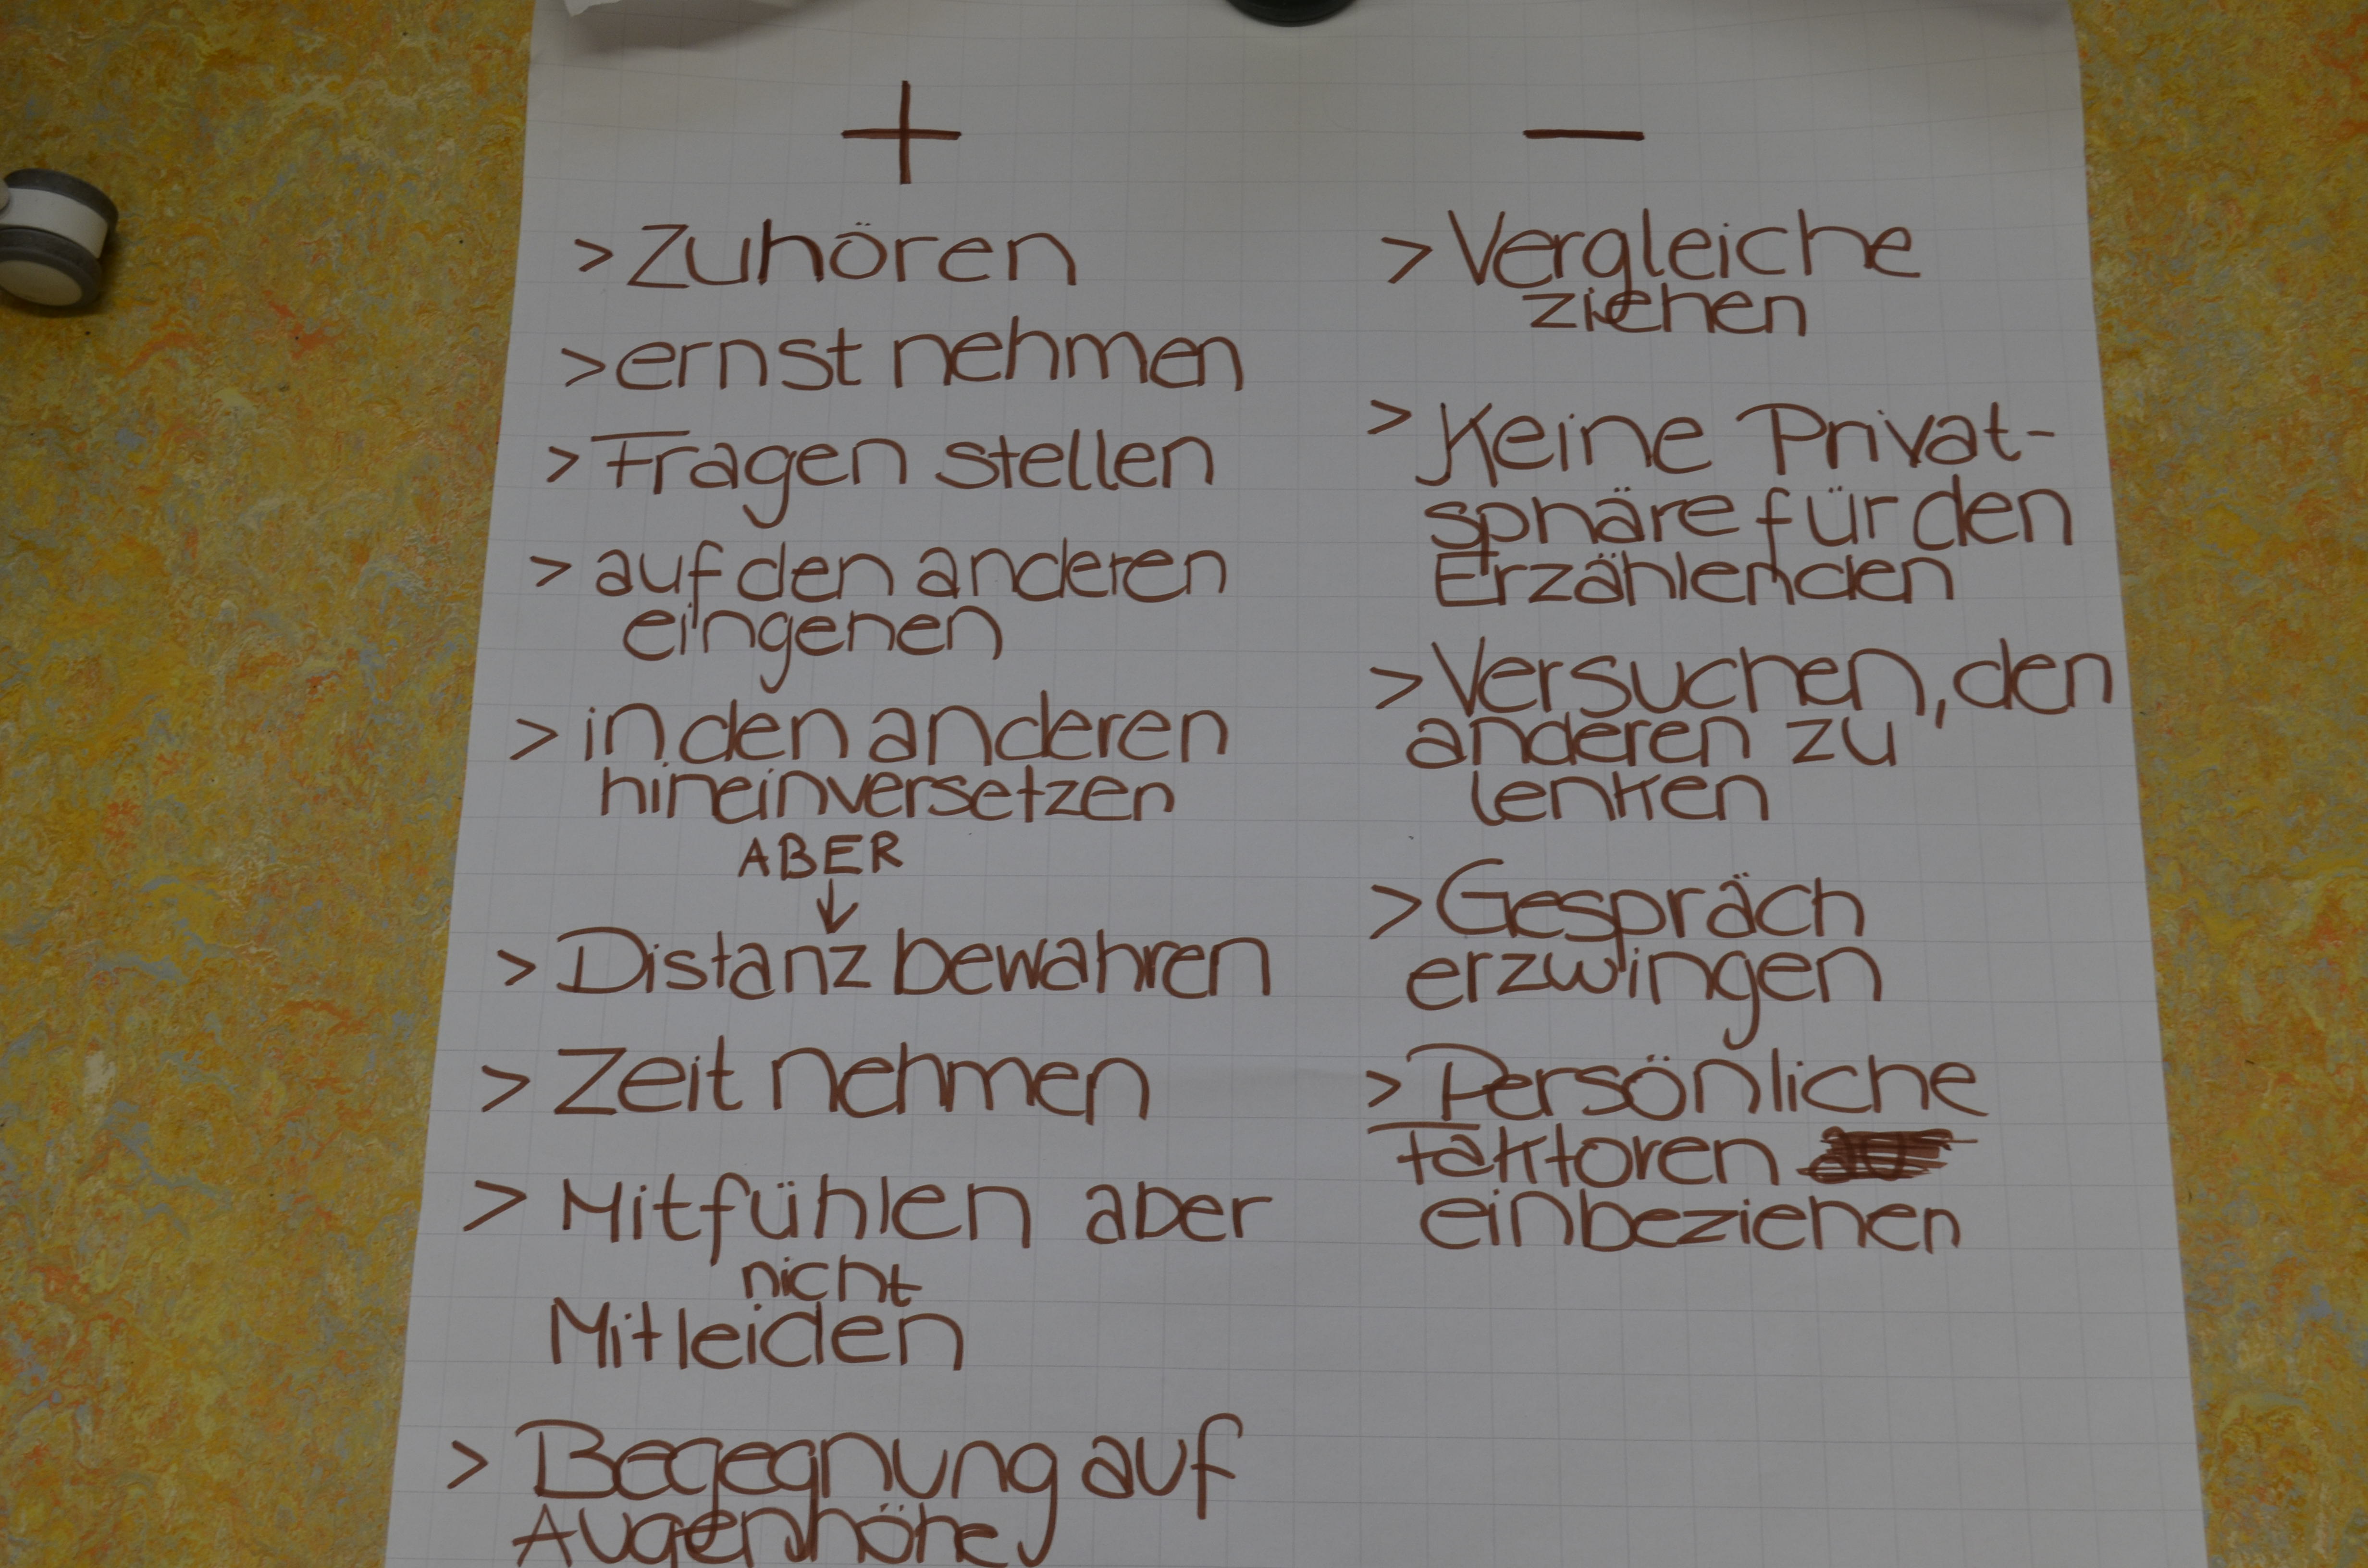 +
> Zuhören
> ernst nehmen
> Fragen stellen
> auf den anderen
eingehen
> in den anderen
hineinversetzen
ABER
↓
> Distanz bewahren
> Zeit nehmen
> Mitfühlen aber
nicht
Mitleiden
> Begegnung auf
Augenhöhe
—
> Vergleiche
ziehen
> Keine Privat-
sphäre für den
Erzählenden
> Versuchen, den
anderen zu
lenken
> Gespräch
erzwingen
> Persönliche
Faktoren
einbeziehen